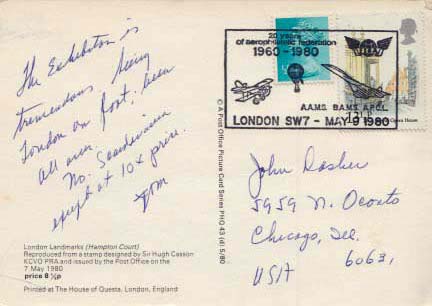 The Exhibition is
tremendous. Seeing
London on foot, been
all over.
No. Scandinavia
except at 10x price.
Tom
London Landmarks (Hampton Court)
Reproduced from a stamp designed by Sir Hugh Casson
KCVO PRA and issued by the Post Office on the
7 May 1980
price 8½p
Printed at The House of Questa, London, England
© A Post Office Picture Card Series PHQ 43 (d) 5/80
20 years
of aerophilatelic federation
1960-1980
A.A.M.S. B.A.M.S. A.P.C.L.
LONDON SW7 - MAY 9 1980
Opera House
John Dasher
5959 N. Oconto
Chicago, Ill.
60631
USA